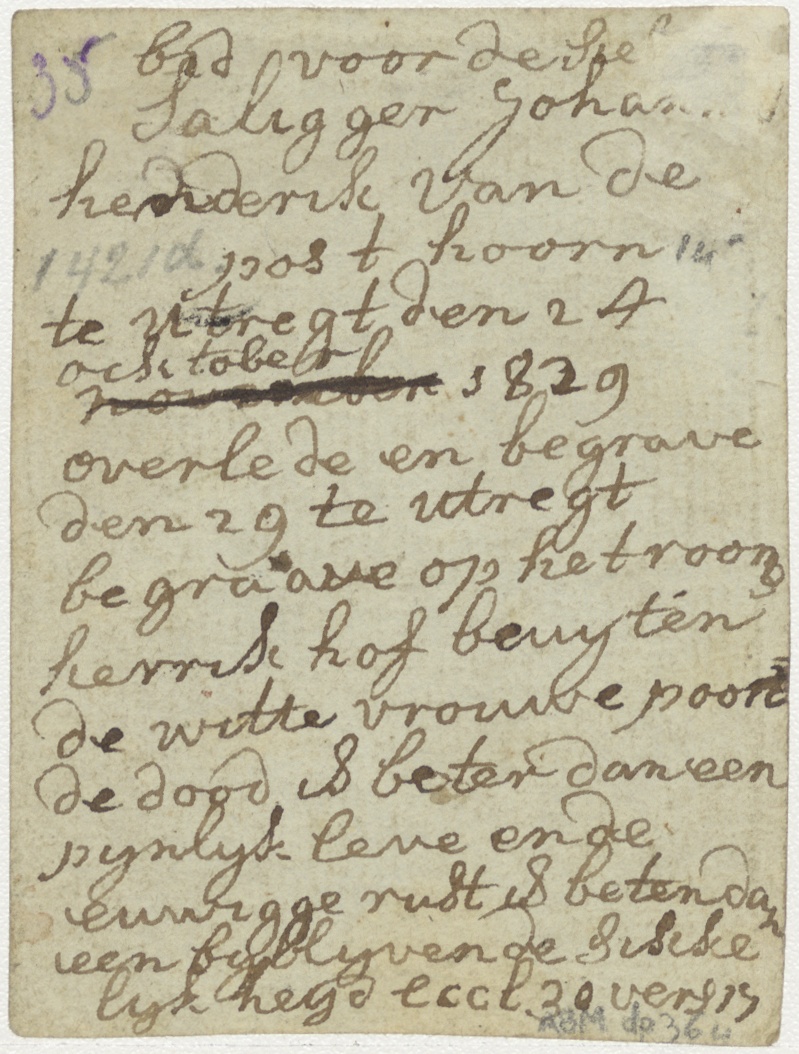 35
bid voor de Siel
Saligger Johan
henderik van de
1421d. post hoorn
te Utregt den 24
ocktober
november 1829
overlede en begrave
den 29 te utregt
begraave op het rooms
kerrik hof beuyten
de witte vrouwe poort
de dood is beter dan een
pynlyk leve en de
euwigge rust is beter dan
een byblyvende Sikke
lyk heyd Eccl. 30 vers 17
ABM dp36